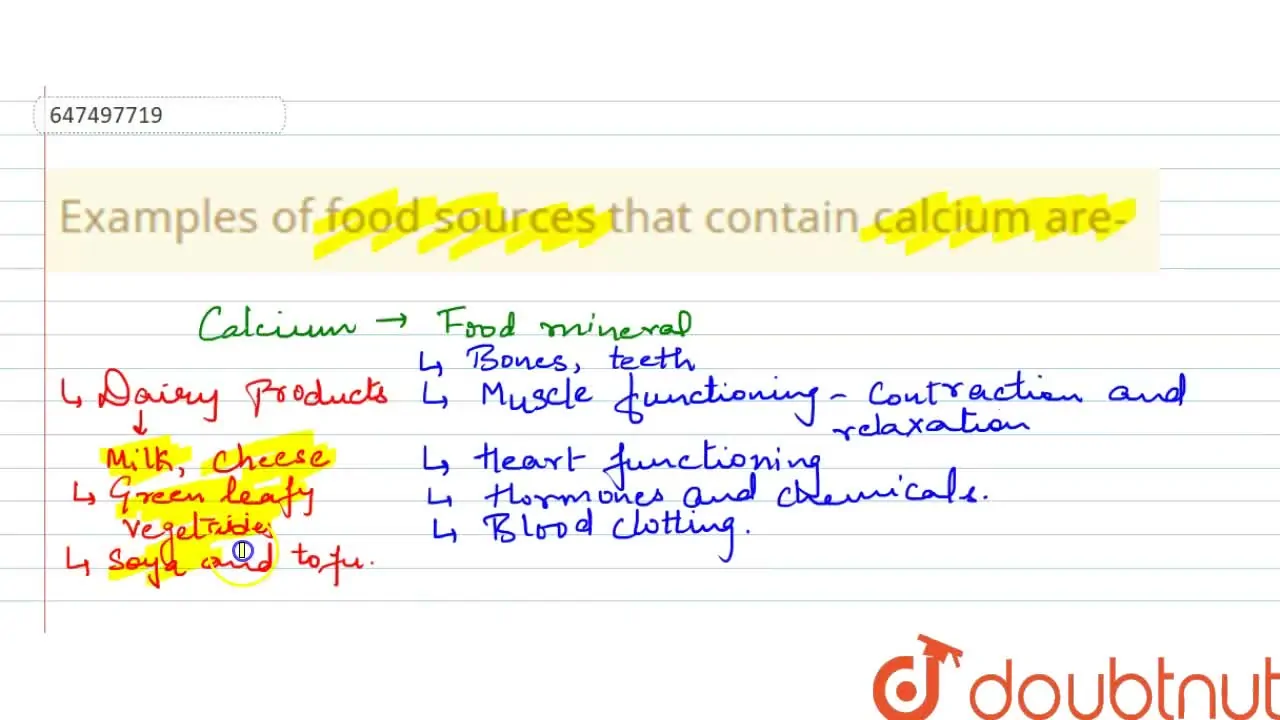 647497719
Examples of food sources that contain calcium are-
Calcium → Food mineral
↳ Bones, teeth
↳ Dairy Products
↓
Milk, cheese
↳ Green leafy
vegetables
↳ Soya and tofu.
↳ Muscle functioning - contraction and
relaxation
↳ Heart functioning
↳ Hormones and chemicals.
↳ Blood clotting.
doubtnut